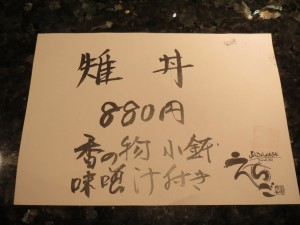 雉丼
880円
香の物 小鉢
味噌汁付き